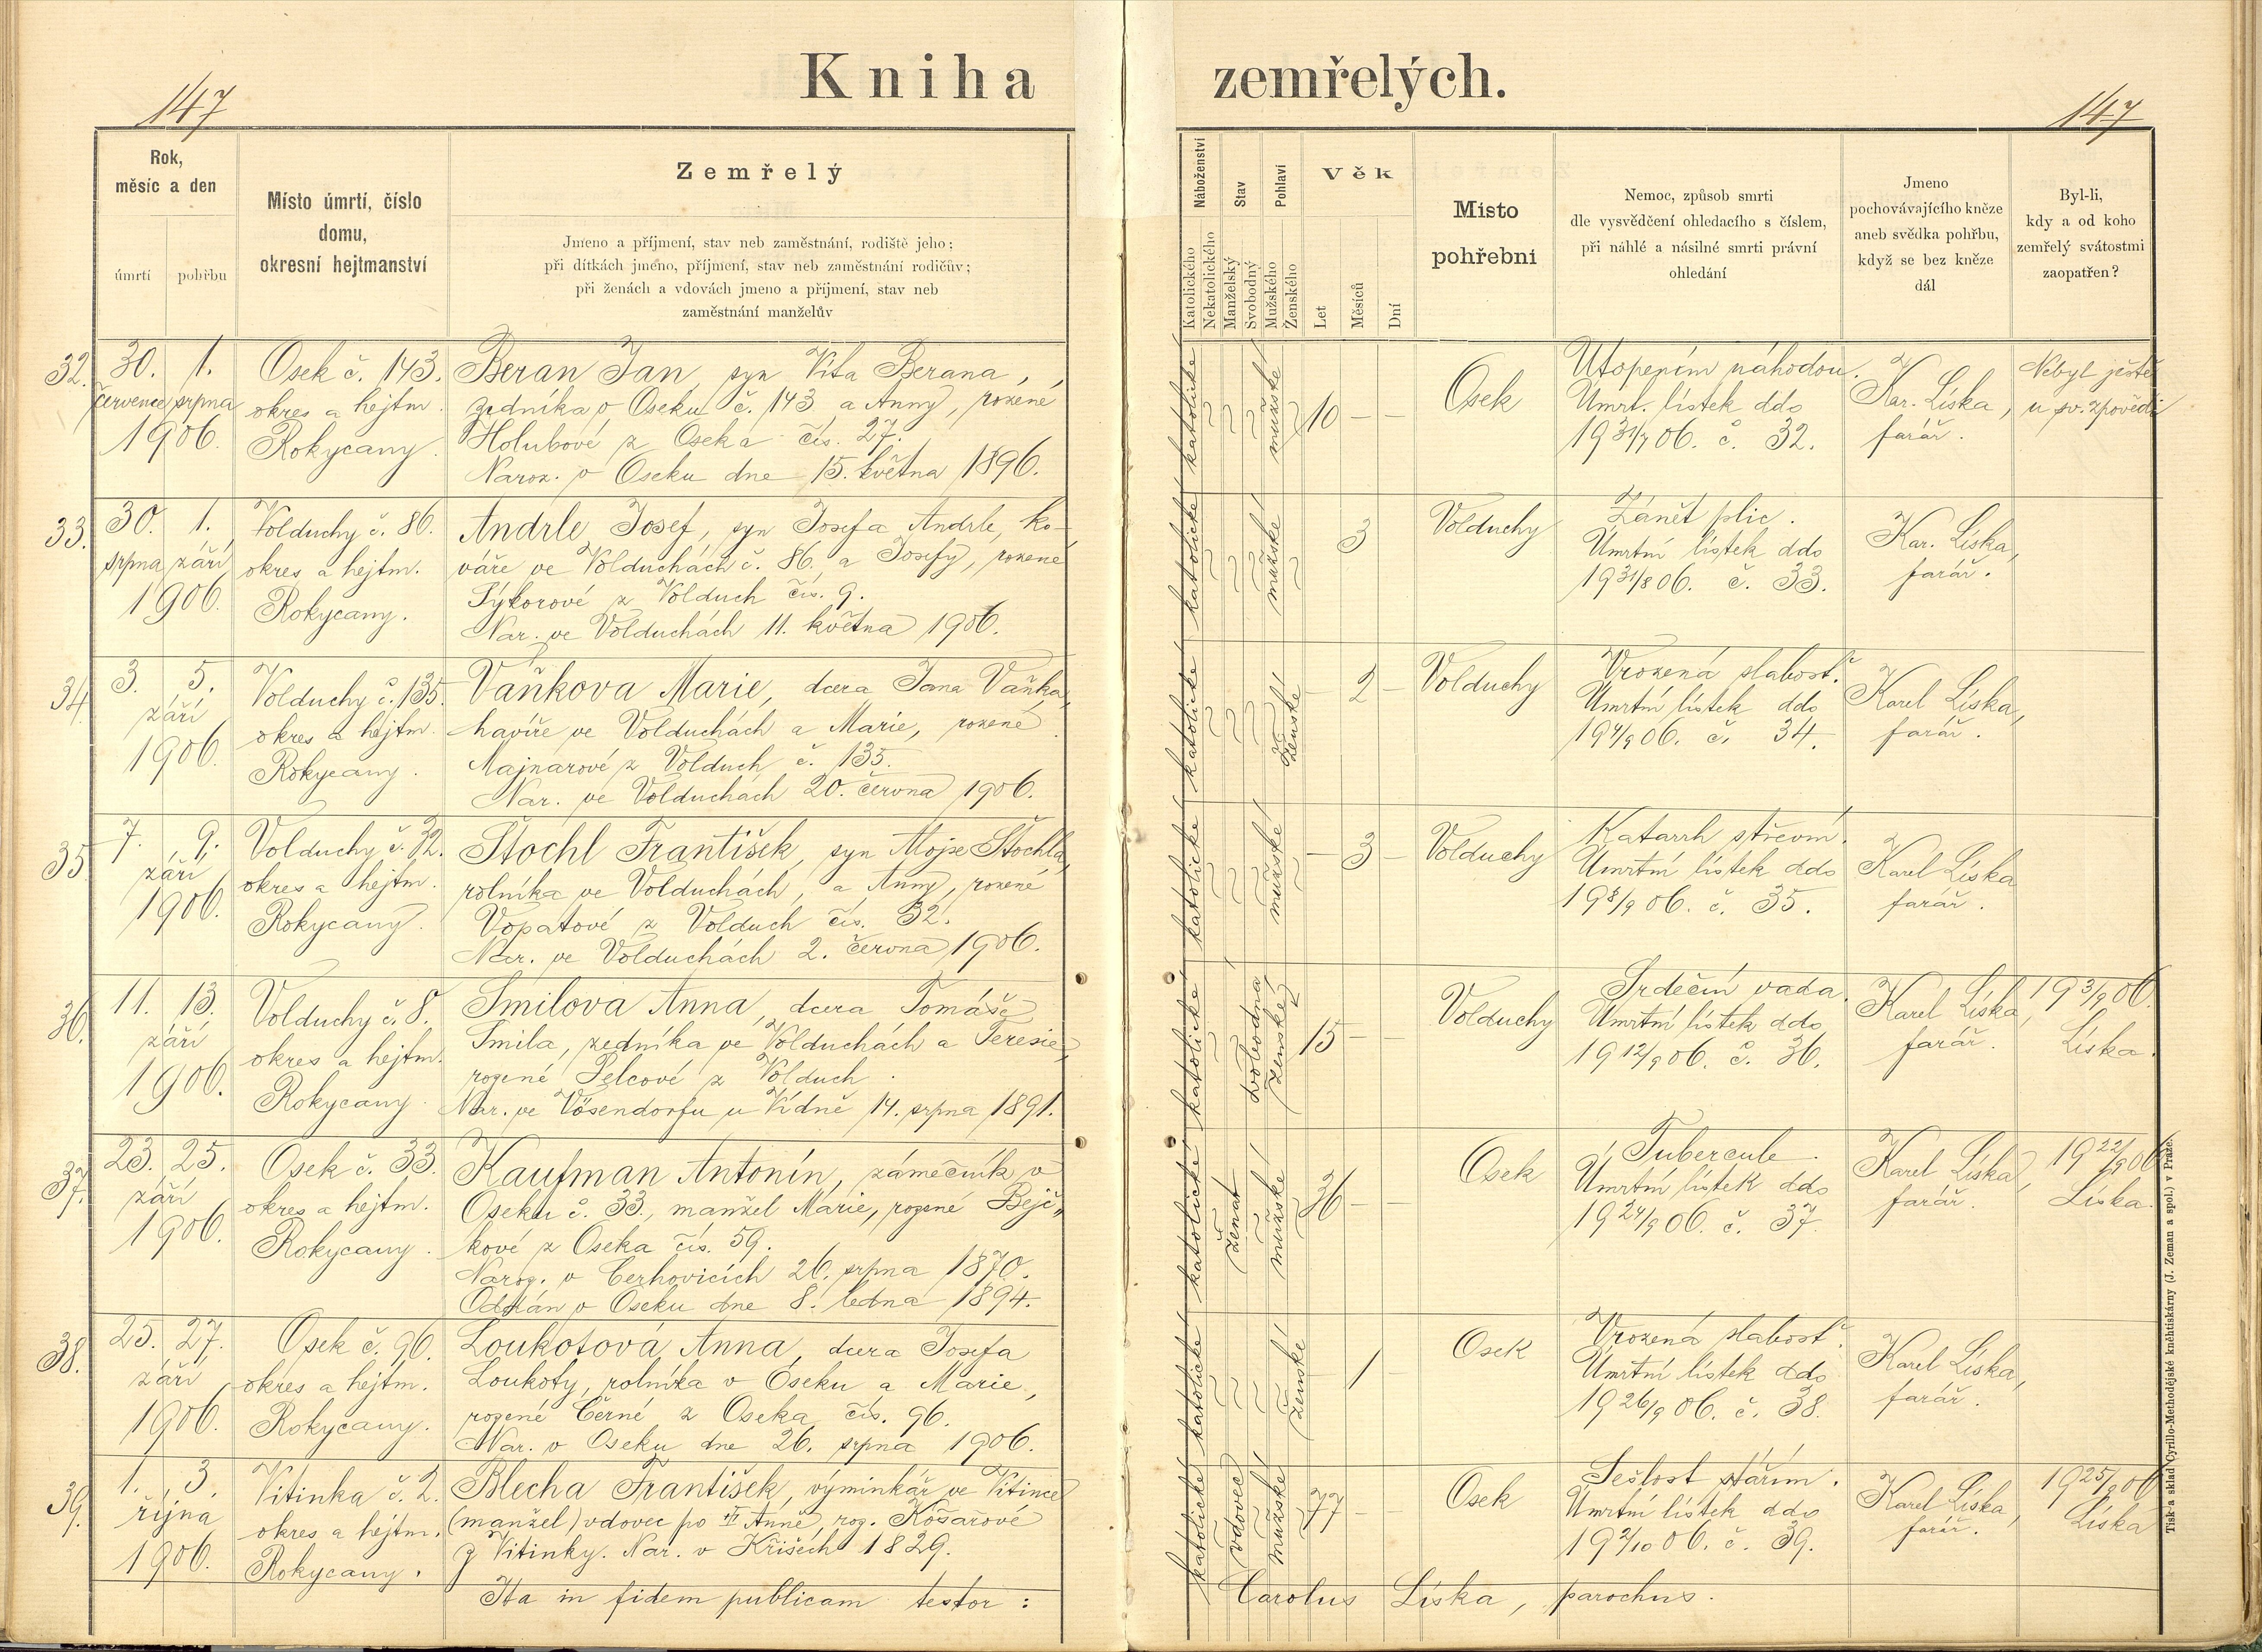 Kniha zemřelých.
147
147
Rok,
měsíc a den
úmrtí
pohřbu
Místo úmrtí, číslo
domu,
okresní hejtmanství
Zemřelý
Jmeno a příjmení, stav neb zaměstnání, rodiště jeho;
při dítkách jmeno, příjmení, stav neb zaměstnání rodičův;
při ženách a vdovách jmeno a příjmení, stav neb
zaměstnání manželův
Náboženství
Katolického
Nekatolického
Stav
Manželský
Svobodný
Pohlaví
Mužského
Ženského
Věk
Let
Měsíců
Dní
Místo
pohřební
Nemoc, způsob smrti
dle vysvědčení ohledacího s číslem,
při náhlé a násilné smrti právní
ohledání
Jmeno
pochovávajícího kněze
aneb svědka pohřbu,
když se bez kněze
dál
Byl-li,
kdy a od koho
zemřelý svátostmi
zaopatřen?
32.
30. 1.
července srpna
1906.
Osek č. 143.
okres a hejtm.
Rokycany.
Beran Jan, syn Víta Berana,
zedníka v Oseku č. 143 a Anny, rozené
Holubové z Oseka čís. 27.
Naroz. v Oseku dne 15. května 1896.
katolické
mužské
10 — —
Osek
Utopením náhodou.
Úmrt. lístek ddo
19 31/7 06. č. 32.
Kar. Líska,
farář.
Nebyl ještě
u sv. zpovědi
33.
30. 1.
srpna září
1906.
Volduchy č. 86.
okres a hejtm.
Rokycany.
Andrle Josef, syn Josefa Andrle, ko-
váře ve Volduchách č. 86. a Josefy, rozené
Sýkorové z Volduch čís. 9.
Nar. ve Volduchách 11. května 1906.
katolické
mužské
3
Volduchy
Zánět plic.
Úmrtní lístek ddo
19 31/8 06. č. 33.
Kar. Líska,
farář.
34.
3. 5.
září
1906.
Volduchy č. 135.
okres a hejtm.
Rokycany.
Vaňkova Marie, dcera Jana Vaňka,
havíře ve Volduchách a Marie, rozené
Majnarové z Volduch č. 135.
Nar. ve Volduchách 20. června 1906.
katolické
ženské
— 2 —
Volduchy
Vrozená slabosť.
Úmrtní lístek ddo
19 4/9 06. č. 34.
Karel Líska,
farář.
35.
7. 9.
září
1906.
Volduchy č. 32.
okres a hejtm.
Rokycany.
Štochl František, syn Alojse Štochla,
rolníka ve Volduchách, a Anny, rozené
Vopatové z Volduch čís. 32.
Nar. ve Volduchách 2. června 1906.
katolické
mužské
— 3 —
Volduchy
Katarrh střevní.
Úmrtní lístek ddo
19 8/9 06. č. 35.
Karel Líska
farář.
36.
11. 13.
září
1906.
Volduchy č. 8.
okres a hejtm.
Rokycany.
Smilova Anna, dcera Tomáše
Smila, zedníka ve Volduchách a Teresie,
rozené Pelcové z Volduch.
Nar. ve Vösendorfu u Vídně 14. srpna 1891.
katolické
svobodná
ženské
15 — —
Volduchy
Srdeční vada.
Úmrtní lístek ddo
19 12/9 06. č. 36.
Karel Líska,
farář.
19 3/9 06.
Líska.
37.
23. 25.
září
1906.
Osek č. 33.
okres a hejtm.
Rokycany.
Kaufman Antonín, zámečník v
Oseku č. 33., manžel Marie, rozené Bejč-
kové z Oseka čís. 59.
Naroz. v Cerhovicích 26. srpna 1870.
Oddán v Oseku dne 8. ledna 1894.
katolické
ženat
mužské
36 — —
Osek
Tubercule.
Úmrtní lístek ddo
19 24/9 06. č. 37.
Karel Líska,
farář.
19 22/9 06
Líska.
38.
25. 27.
září
1906.
Osek č. 96.
okres a hejtm.
Rokycany.
Loukotová Anna, dcera Josefa
Loukoty, rolníka v Oseku a Marie,
rozené Černé z Oseka, čís. 96.
Nar. v Oseku dne 26. srpna 1906.
katolické
ženské
1 —
Osek
Vrozená slabosť.
Úmrtní lístek ddo
19 26/9 06. č. 38.
Karel Líska,
farář.
39.
1. 3.
října
1906.
Vitinka č. 2.
okres a hejtm.
Rokycany.
Blecha František, výminkář ve Vitince
(manžel) vdovec po II Anně, roz. Košařové
z Vitinky. Nar. v Křišech 1829.
katolické
vdovec
mužské
77 —
Osek
Sešlost stářím.
Úmrtní lístek ddo
19 2/10 06. č. 39.
Karel Líska,
farář.
19 25/9 06
Líska
Ita in fidem publicam testor: Carolus Líska, parochus.
Tisk a sklad Cyrillo-Methodějské knihtiskárny (J. Zeman a spol.) v Praze.